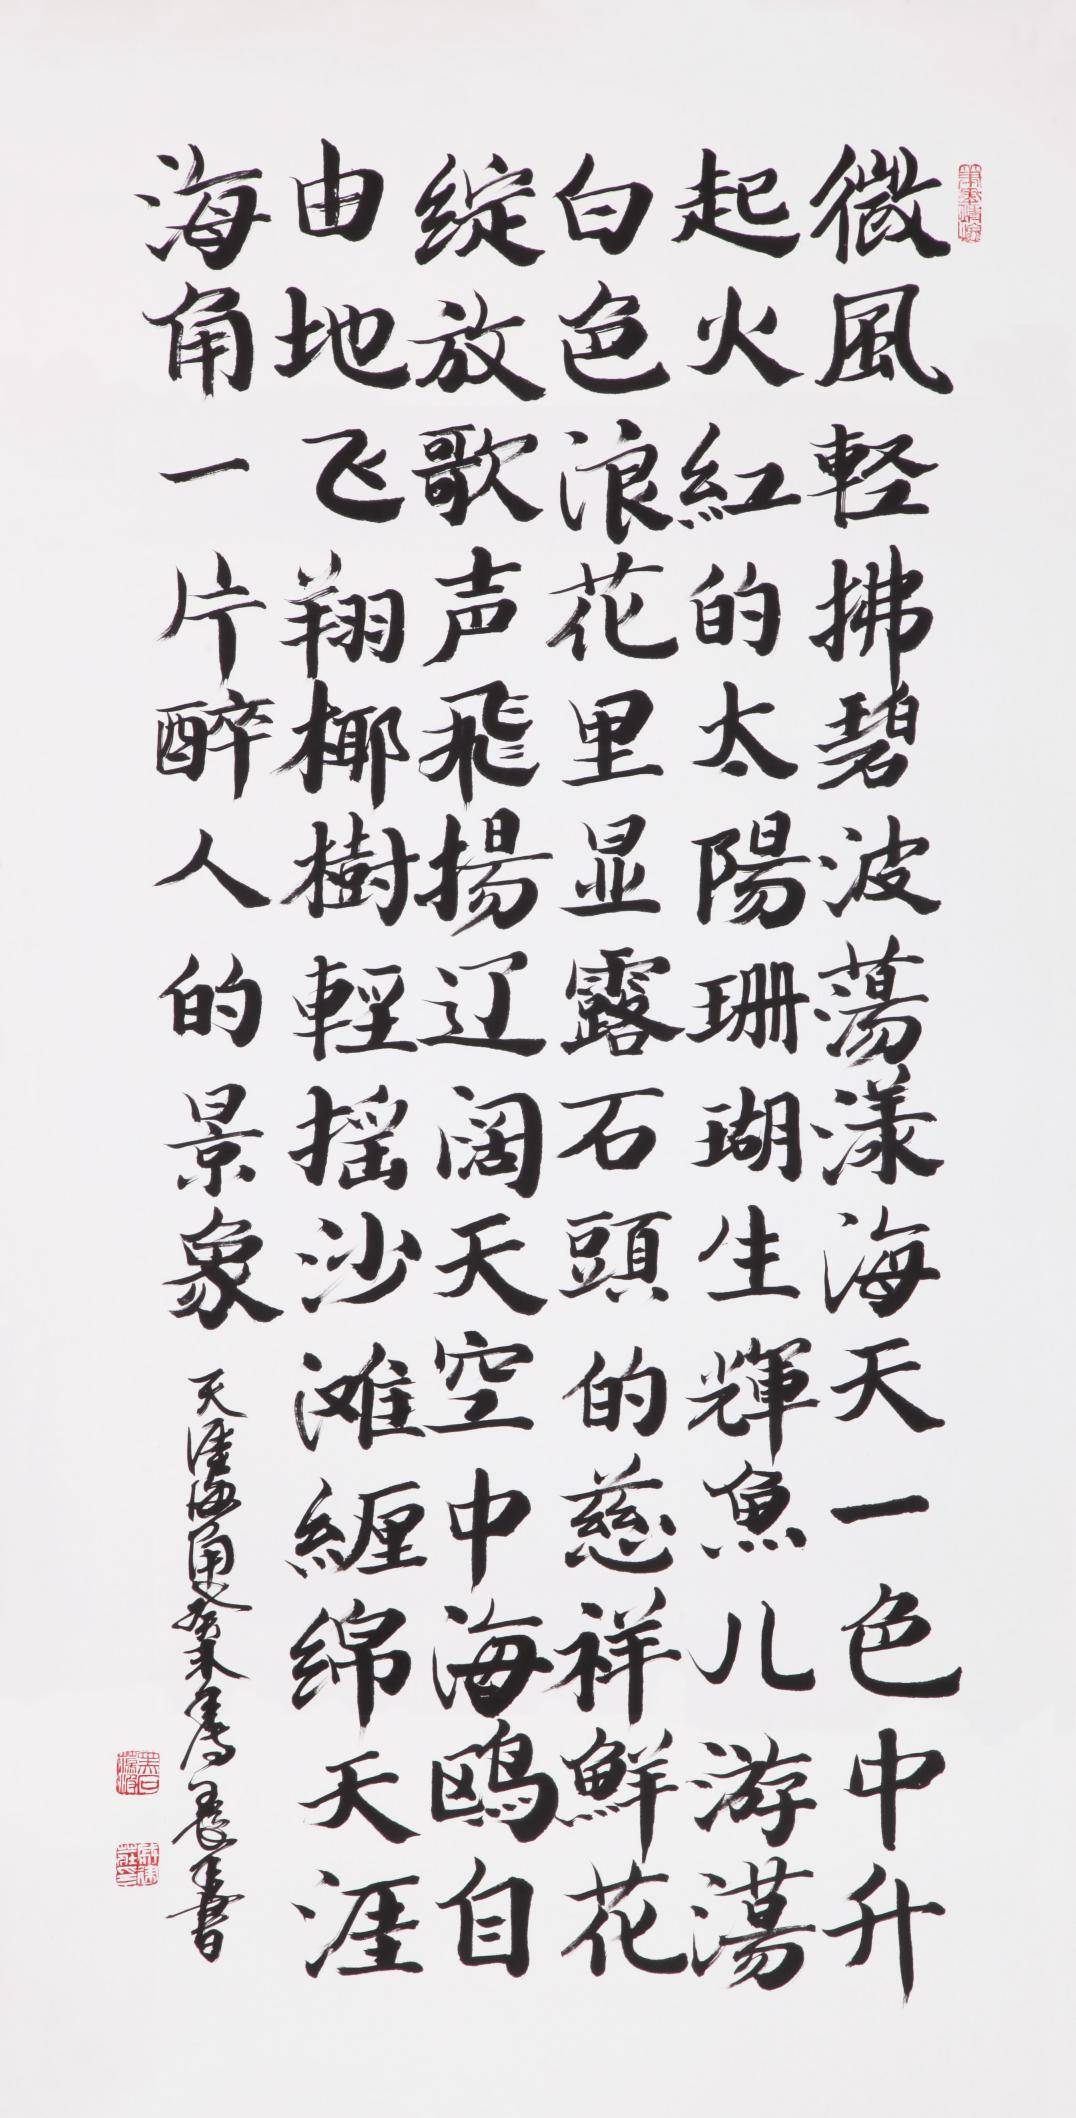 微風軽拂碧波蕩漾海天一色中升
起火紅的太陽珊瑚生輝魚儿游蕩
白色浪花里显露石頭的慈祥鮮花
绽放歌声飛揚辽阔天空中海鸥自
由地飞翔椰樹輕摇沙滩緾绵天涯
海角一片醉人的景象
天涯海角癸未書